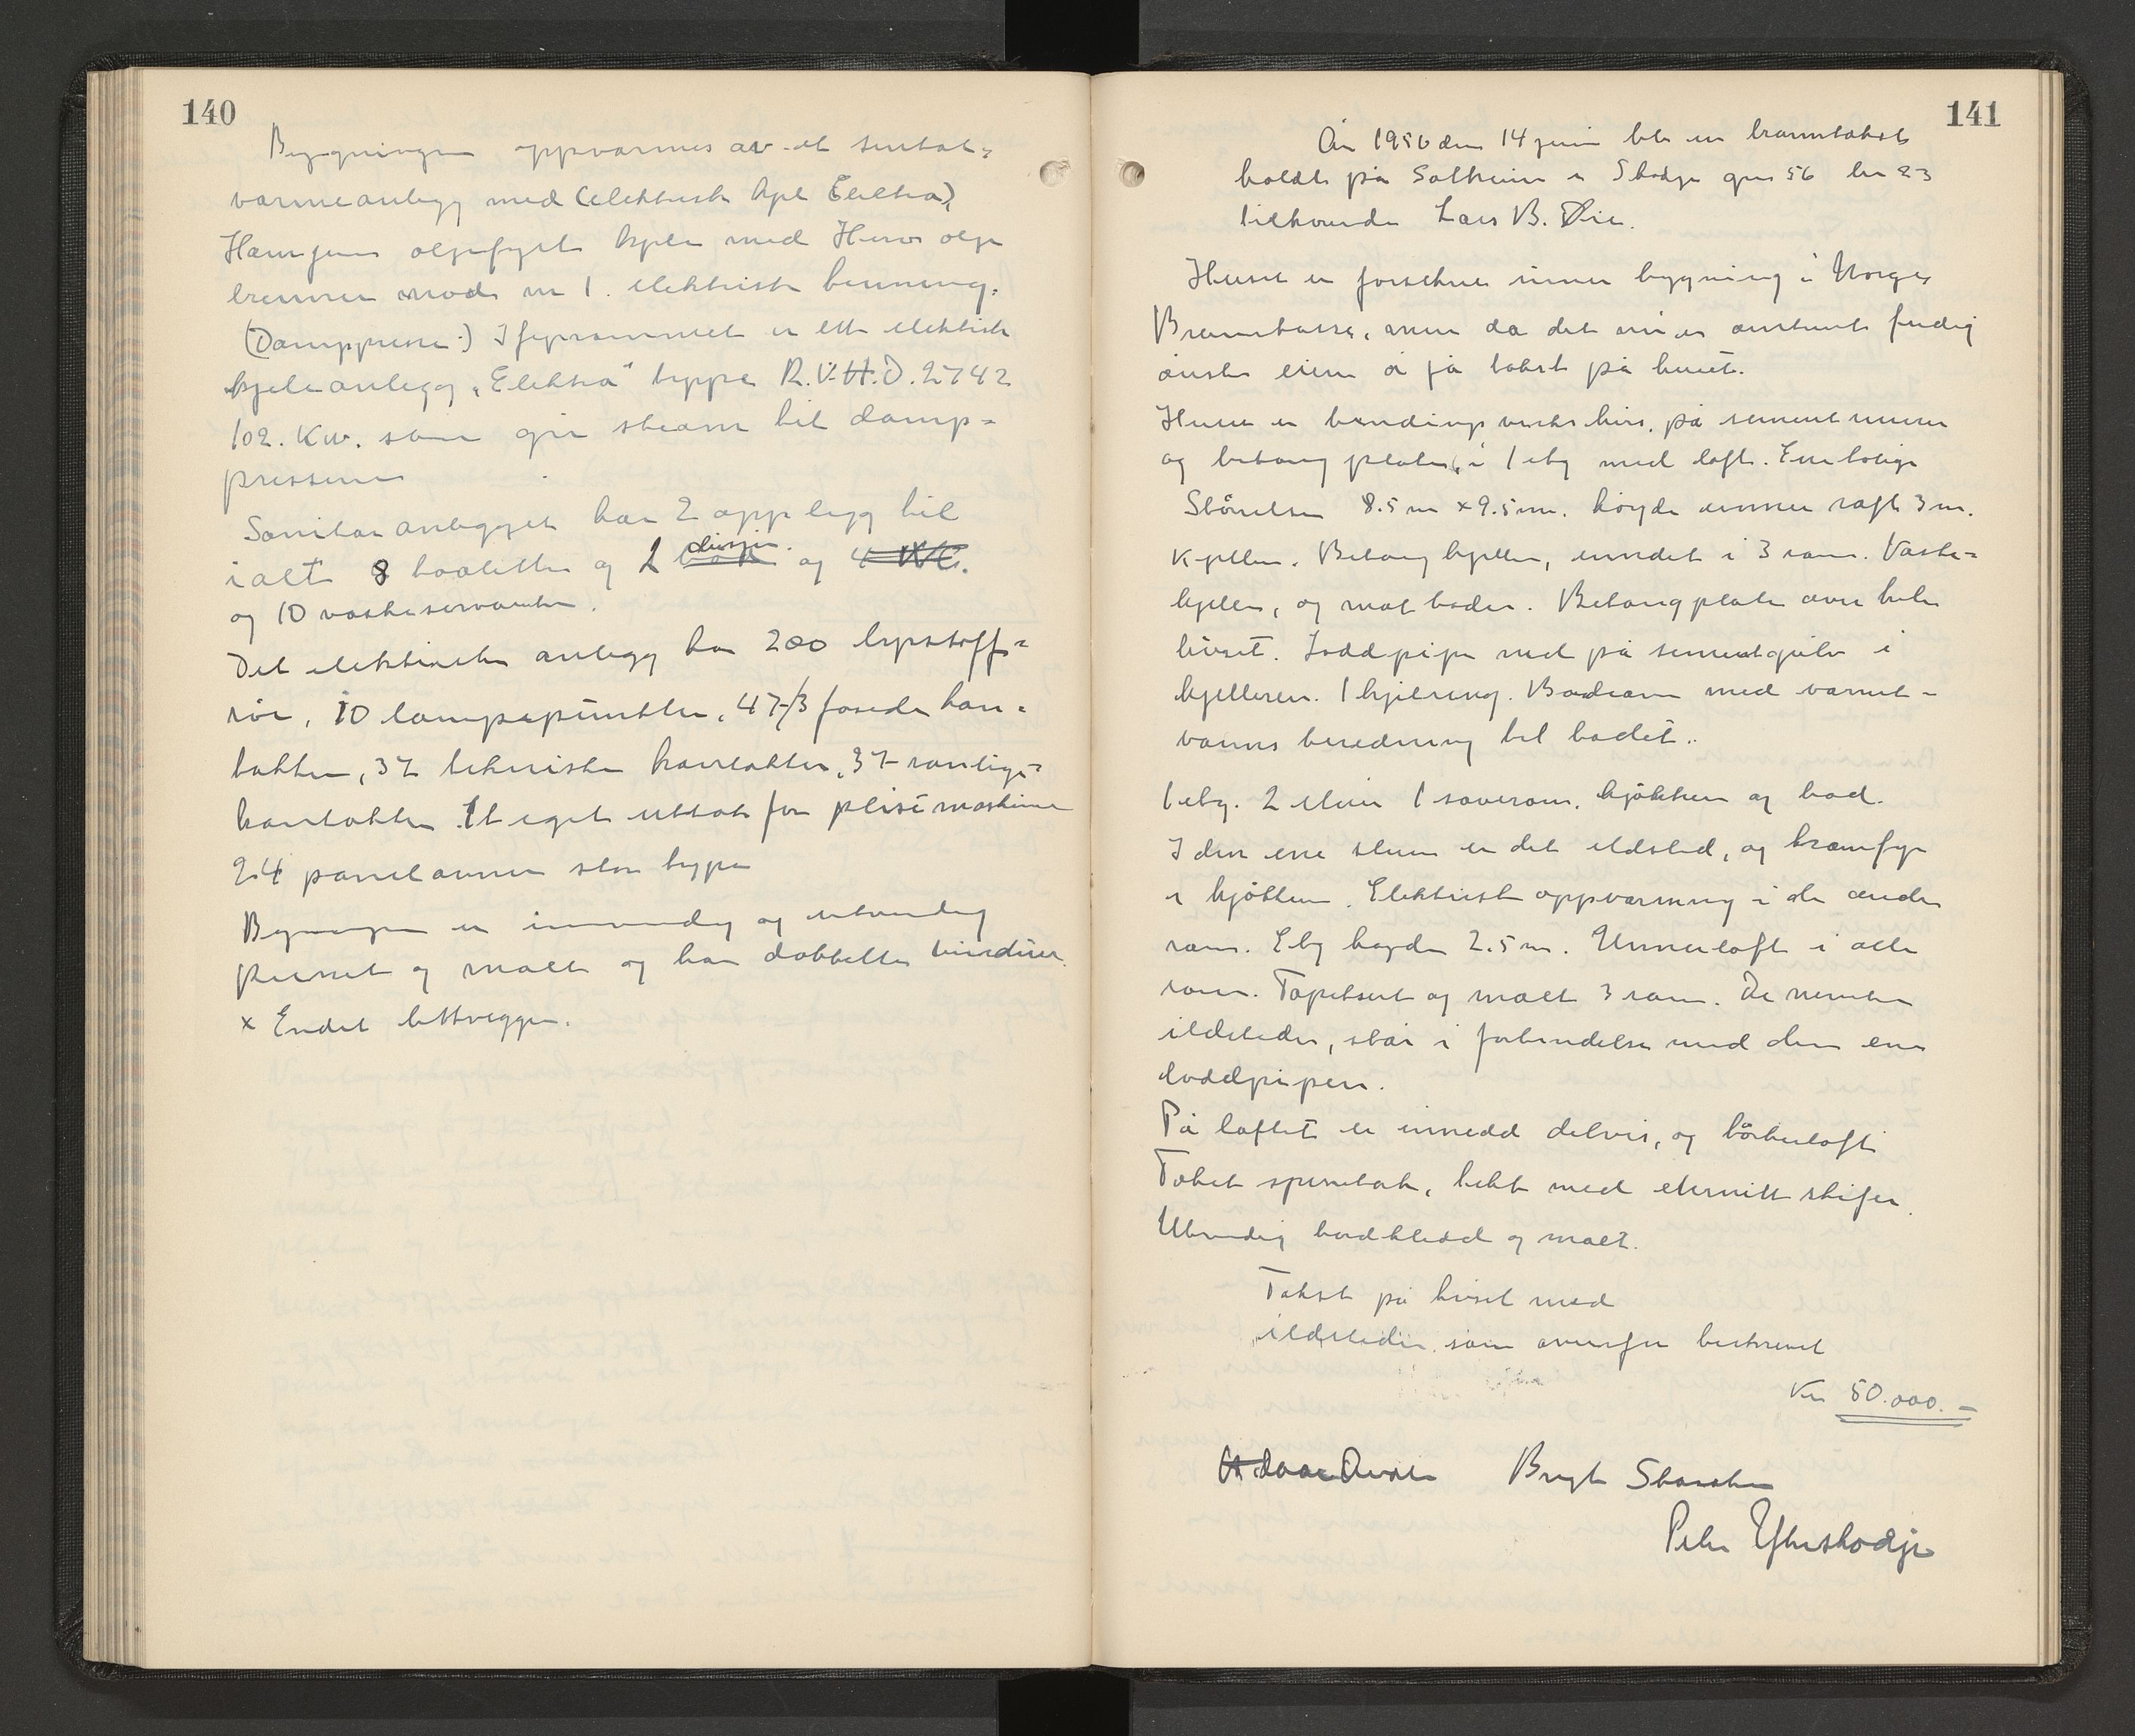 140
Bygningen oppvarmes av et sentral-
varmeanlegg med (elektrisk kjel Elektra),
oljefyrt kjele med olje
brenner mod. nr 1. elektrisk
(Damppresse.) I fyrrommet er ett elektrisk
kjeleanlegg "Elektra" type R.V.H.D. 2742
102. Kw. som gir steam til damp-
pressene
Sanitæranlegget har 2 opplegg til
ialt 8 toaletter og 2 dusjer. og 4 WC.
og 10 vaskeservanter.
Det elektriske anlegg har 200 lysstoff-
rør, 10 lampepunkter, 47-/3 fasede kon-
takter, 37 tekniske kontakter, 37 vanlige
kontakter. Et eget uttak for plisémaskine
24 panelovner stor type
Bygningen er innvendig og utvendig
pusset og malt og har dobbelte vinduer.
x Endel lettvegger.
141
År 1956 den 14 juni ble en branntakst
holdt på Solheim i Skodje gnr 56 bnr 23
tilhørende Lars B. Øie.
Huset er forsikret under bygning i Norges
Brannkasse, men da det nu er omtrent ferdig
ønsker eieren å få takst på huset.
Huset er bindingsverks hus, på sementmurer
og betong plate, i 1 etg med loft. Enebolig
Størrelse 8.5 m x 9.5 m. høyde under raft 3 m.
Kjeller. Betong kjeller, inndelt i 3 rom. Vaske-
kjeller, og matboder. Betongplate over hele
huset. Loddpipe ned på sementgulv i
kjelleren. 1 kjelering. Badrom med varmt-
vanns beredning til badet.
1 etg. 2 stuer 1 soverom, kjøkken og bad.
I den ene stuen er det ildsted, og komfyr
i kjøkken. Elektrisk oppvarming i de andre
rom. Etg høyde 2.5 m. Underloft i alle
rom. Tapetsert og malt 3 rom. De nevnte
ildsteder, står i forbindelse med den ene
loddpipen.
På loftet er innredd delvis, og tørkeloft
Taket sperretak, tekt med eternitt skifer.
Utvendig bordkledd og malt.
Takst på huset med
ildsteder som ovenfor beskrevet
Kr 50.000.-
Bryt
Peter Ytterskodje